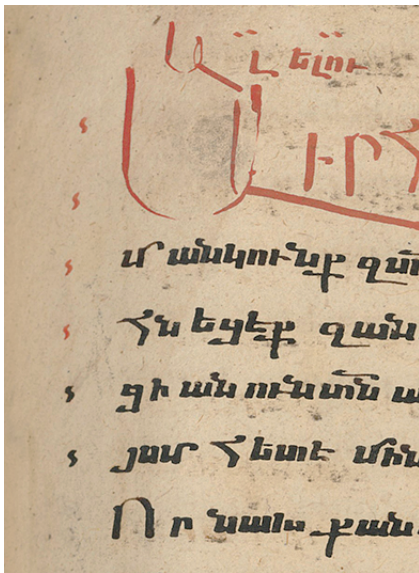 Ալ ելու
Աւրհ
մանկունք զտ
հնեցէք զան
ցի անուն տն ա
յսմ հետէ մին
Որ նախ քան